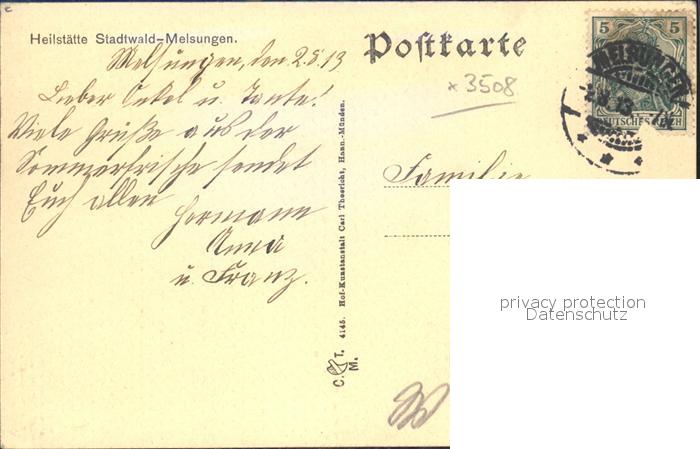 Heilstätte Stadtwald-Melsungen.
Melsungen, den 2.8.13
Lieber Onkel u. Tante!
Viele Grüße aus der
Sommerfrische sendet
Euch allen
Hermann
Anna
u. Franz.
C. T. M. 4145. Hof-Kunstanstalt Carl Theericht, Hann.-Münden.
Postkarte
* 3508
5 5
DEUTSCHES REICH
MELSUNGEN
Familie
privacy protection
Datenschutz